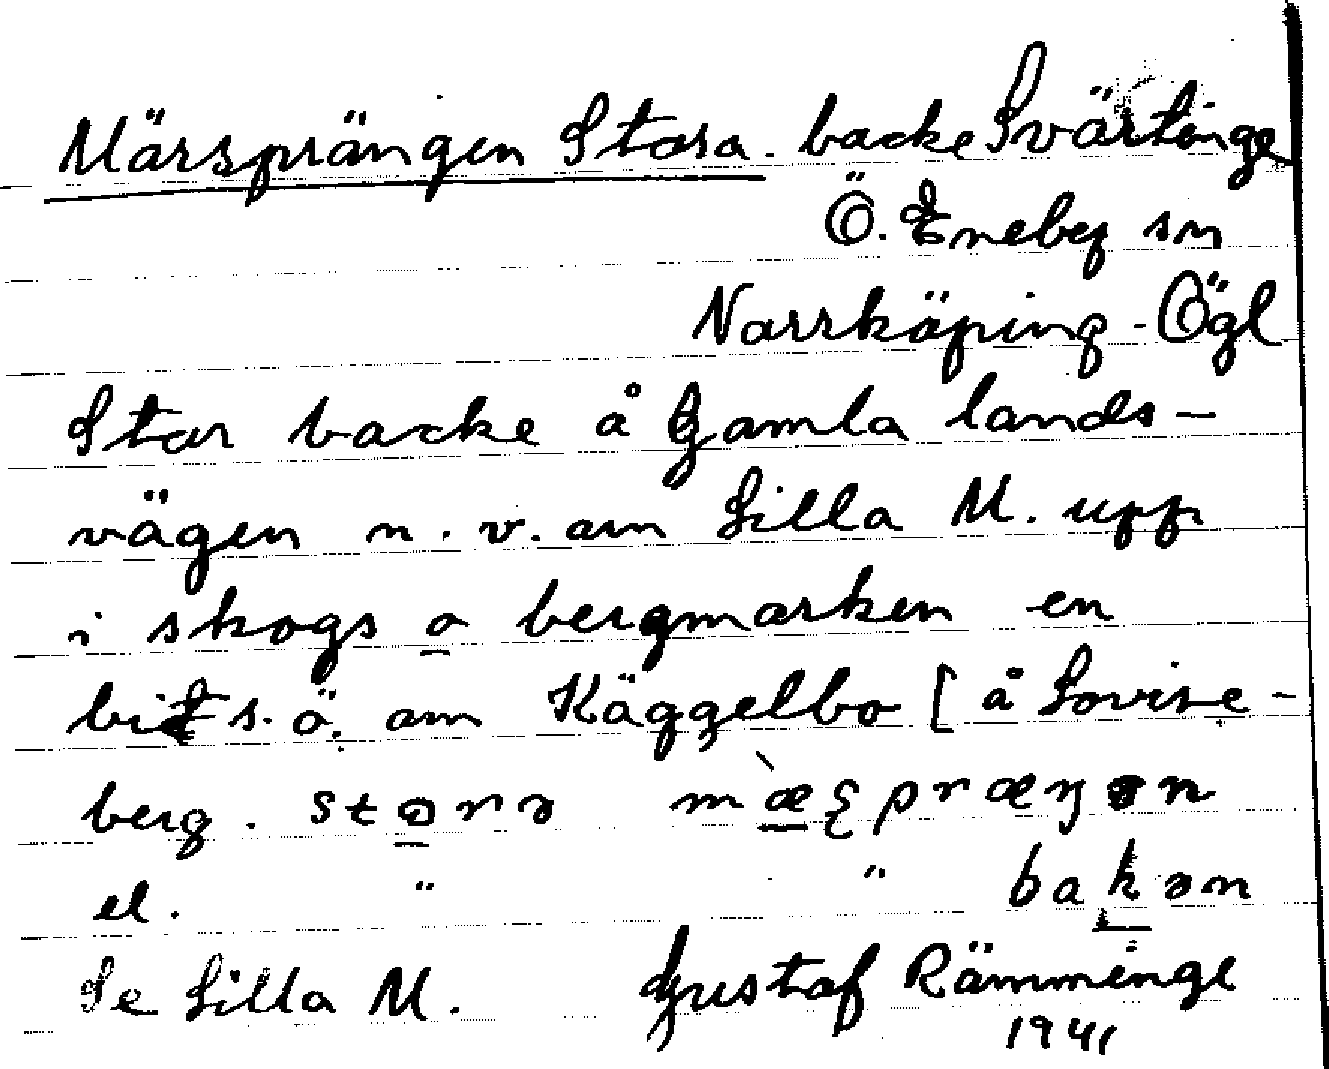 Märsprängen Stora. backe Svärtinge
Ö. Eneby sn
Norrköping - Ögl
Stor backe å Gamla lands-
vägen n. v. om Lilla M. upp
i skogs o bergmarken en
bit s. ö. om Käggelbo [ å Lovise-
berg. stọrə mæ̀ʂpræŋən
el. " " bakən
Se Lilla M. Gustaf Rämminge
1941